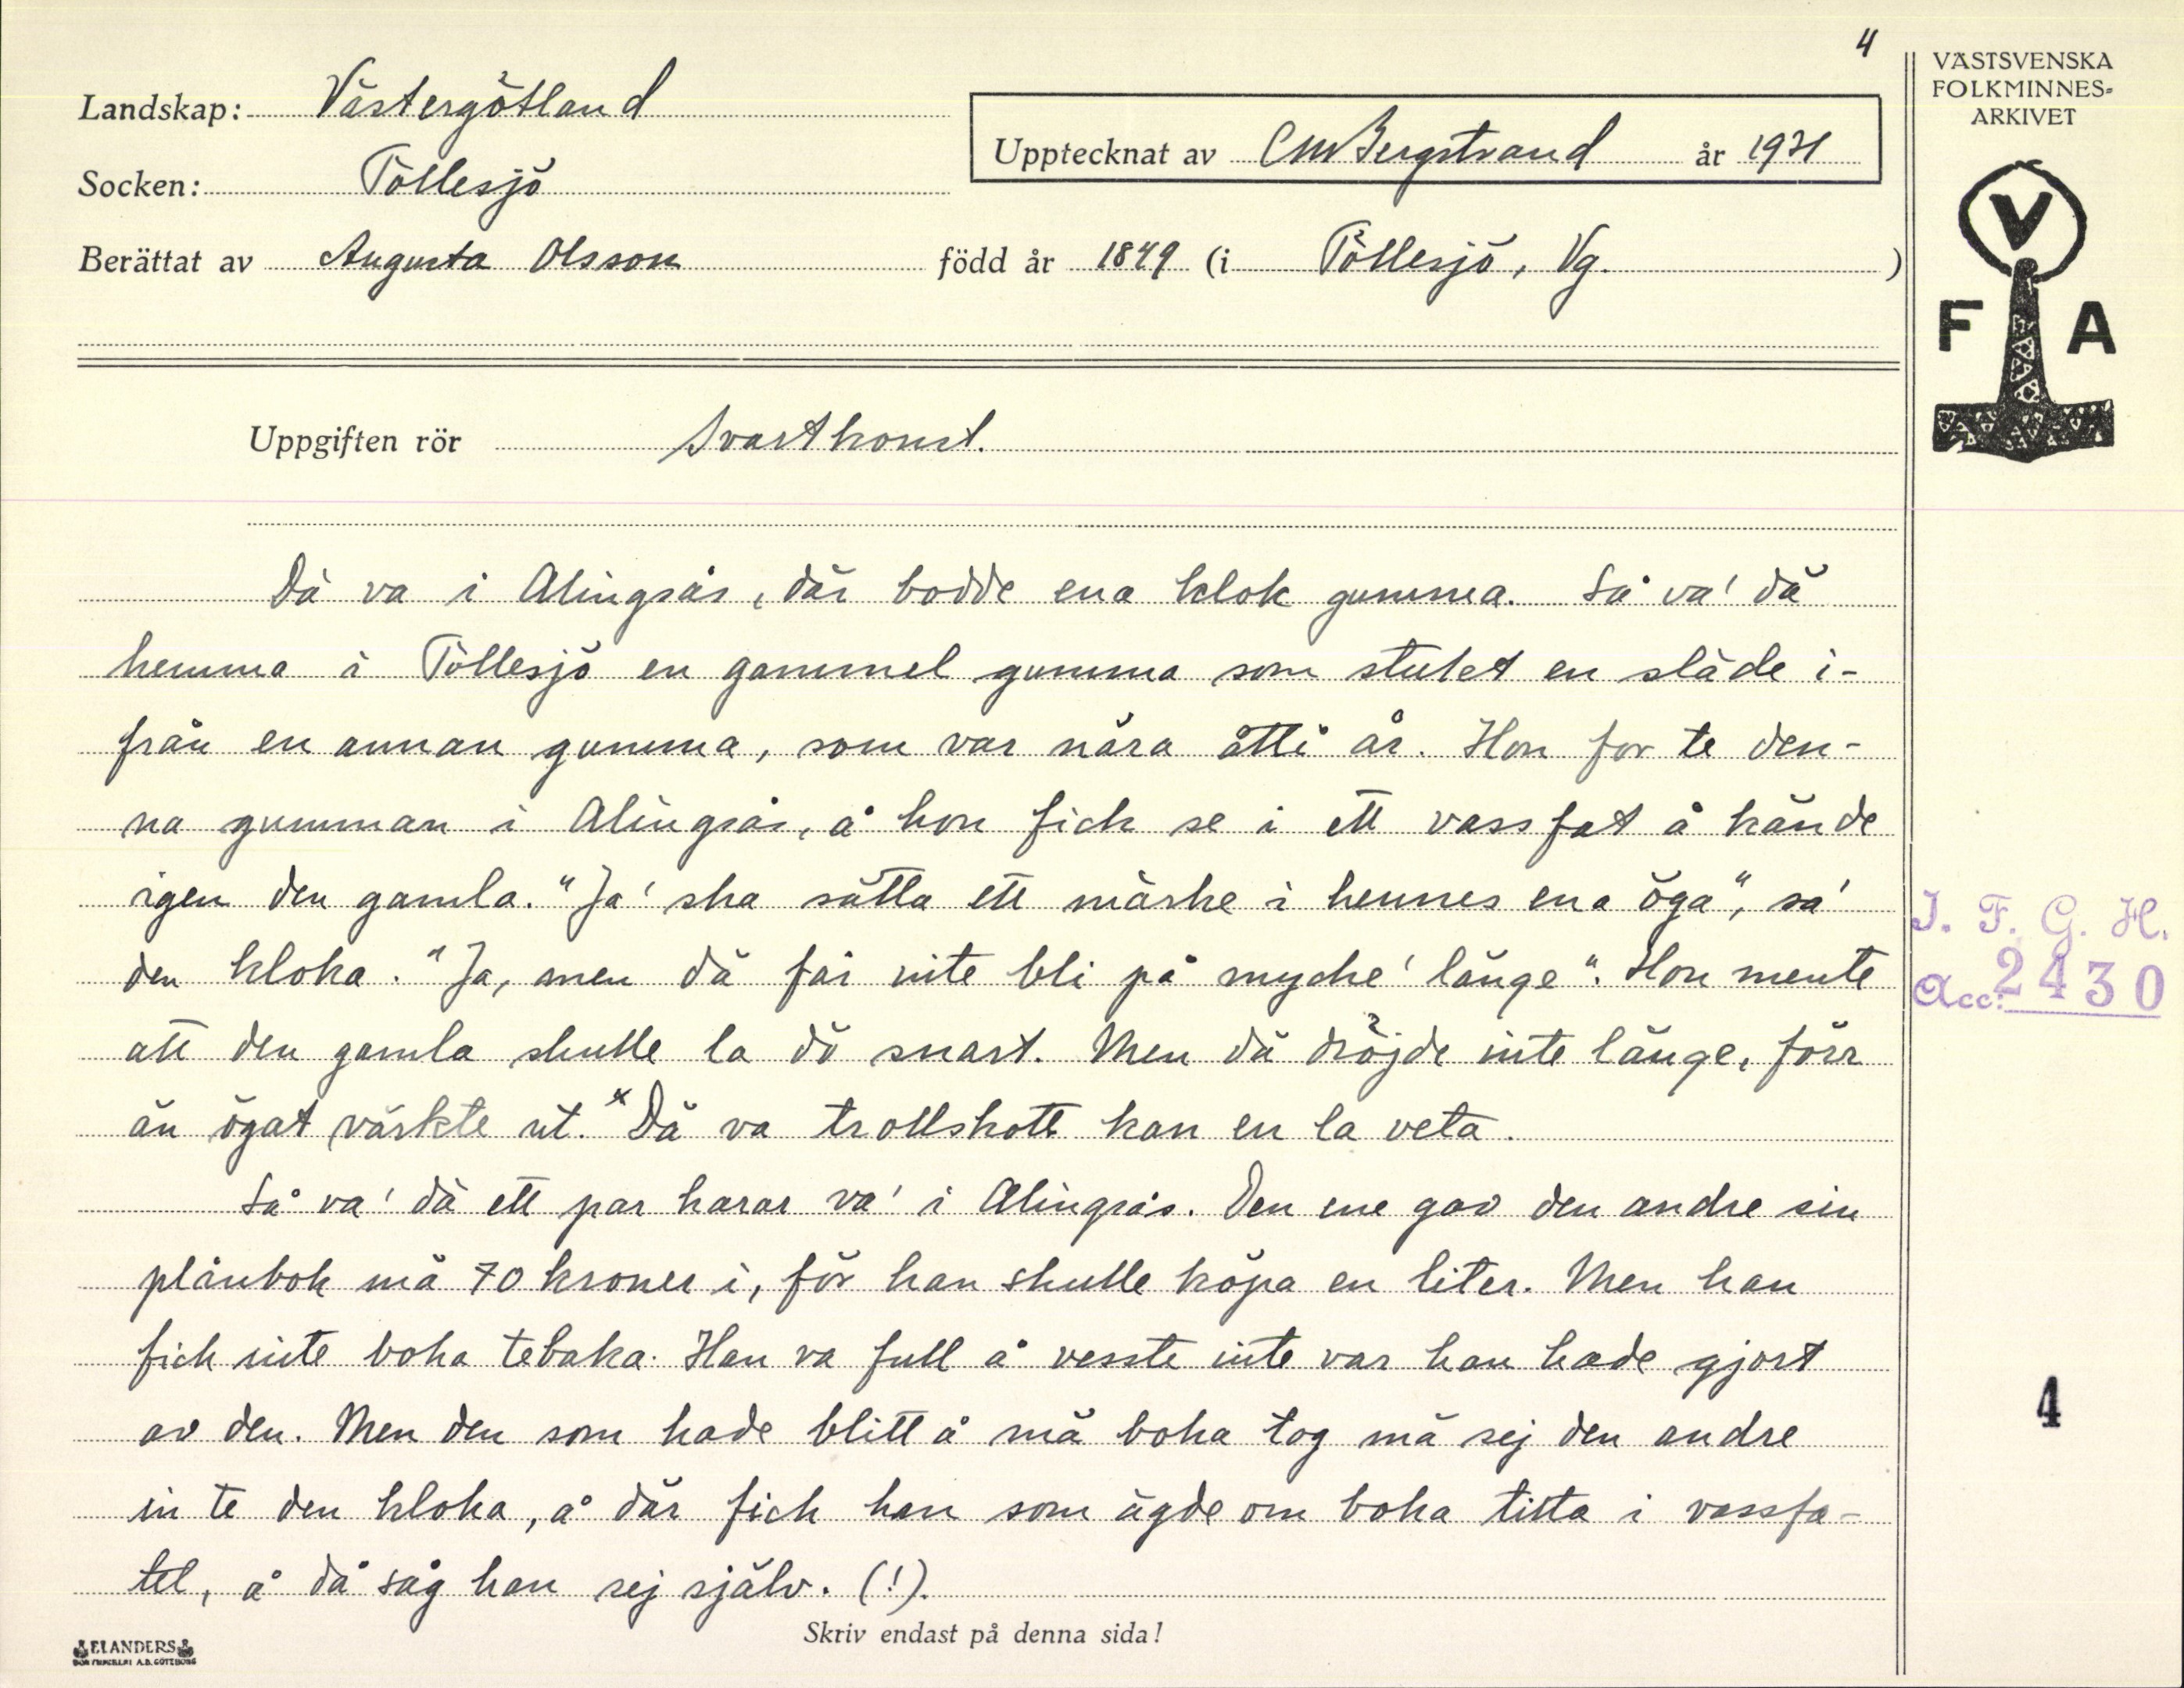 4
VÄSTSVENSKA
FOLKMINNES-
ARKIVET
Landskap: Västergötland
Upptecknat av CMBergstrand år 1931
Socken: Töllesjö
Berättat av Augusta Olsson född år 1849 (i Töllesjö, Vg. )
V
F A
Uppgiften rör Svartkonst.
Dä va i Alingsås, där bodde ena klok gumma. Så va' dä
hemma i Töllesjö en gammel gumma som stulet en släde i-
från en annan gumma, som var nära åtti år. Hon for te den-
na gumman i Alingsås, å hon fick se i ett vassfat å kände
igen den gamla. "Ja' ska sätta ett märke i hennes ena öga", sa'
den kloka. "Ja, men dä får inte bli på mycke' länge". Hon mente
att den gamla skulle la dö snart. Men dä dröjde inte länge, förr
än ögat värkte ut.x Dä va trollskott kan en la veta.
Så va' dä ett par karar va' i Alingsås. Den ene gav den andre sin
plånbok mä 70 kroner i, för han skulle köpa en liter. Men han
fick inte boka tebaka. Han va full å vesste inte var han hade gjort
av den. Men den som hade blitt å mä boka tog mä sej den andre
in te den kloka, å där fick han som ägde om boka titta i vassfa-
tet, å då såg han sej själv. (!).
J. F. G. H.
Acc: 2430
4
Skriv endast på denna sida!
ELANDERS
BOKTRYCKERI A.B. GÖTEBORG